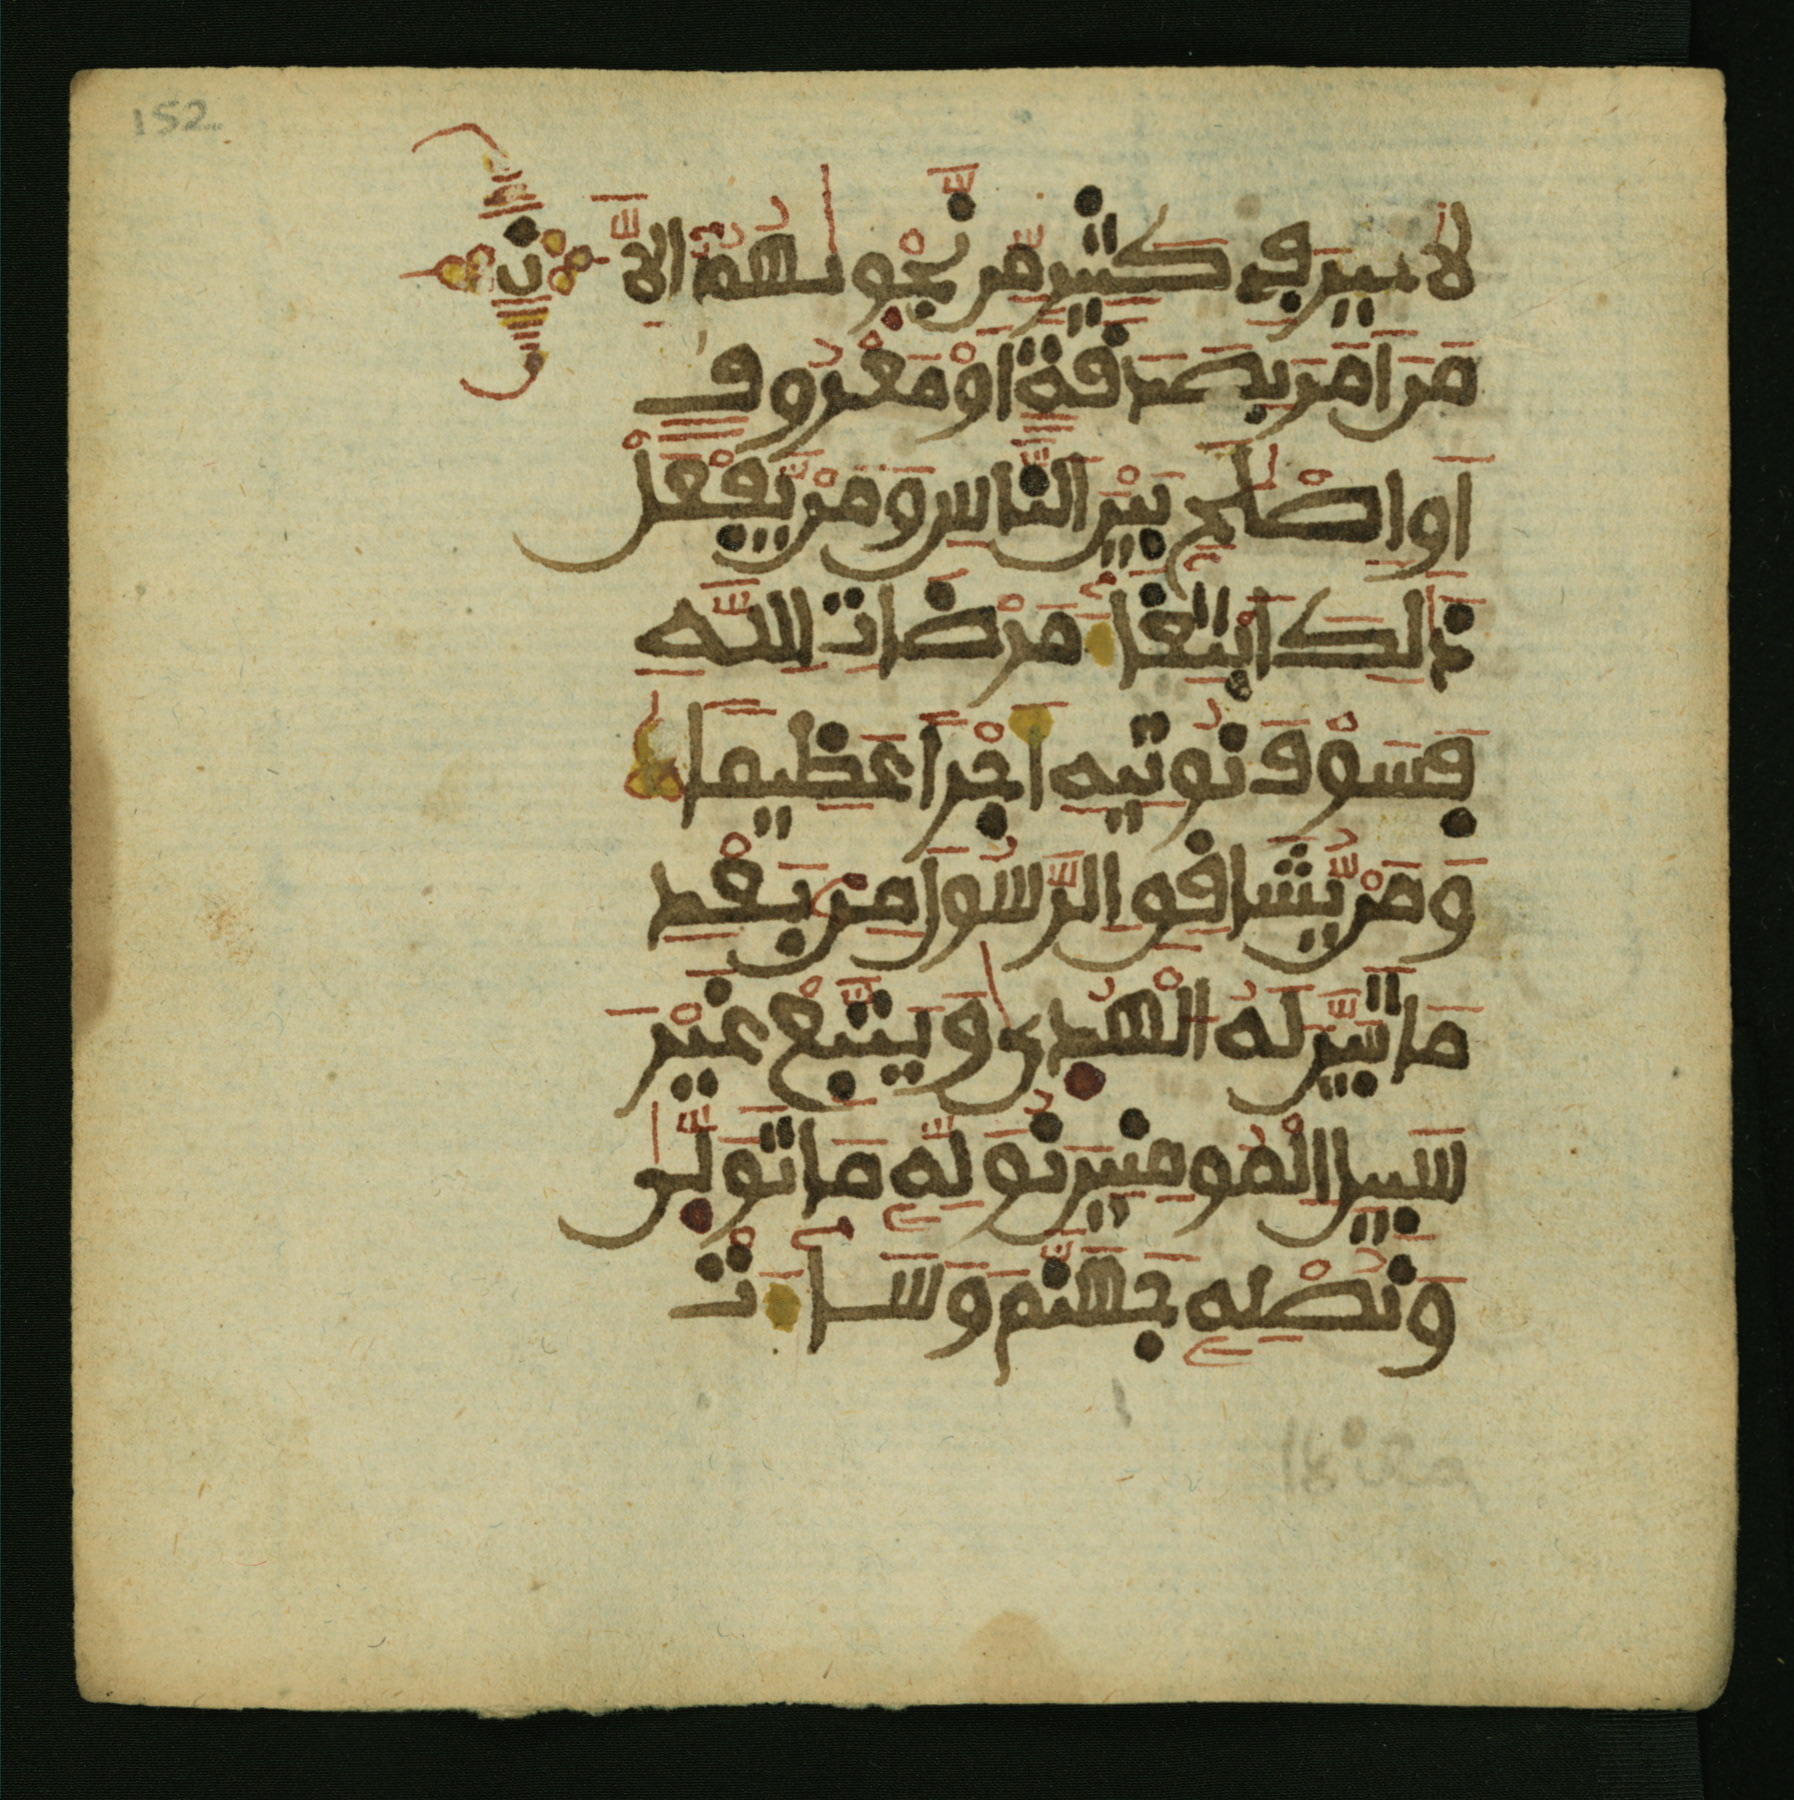 152
لَّا خَيْرَ فِے كَثِيرٖ مِّن نَّجْوٜيٰهُمُۥٓ إِلَّا ن
مَنَ اَمَرَ بِصَدَقَةٍ اَوْ مَعْرُوفٍ
اَوِ اِصْلَٰحِۢ بَيْنَ اَ۬لنَّاسِ وَمَنْ يَّفْعَلْ
ذَٰلِكَ اَ۪بْتِغَآءَ مَرْضَاتِ اِ۬للَّهِ
فَسَوْفَ نُوتِيهِ أَجْراً عَظِيماً
وَمَنْ يُّشَاقِقِ اِ۬لرَّسُولَ مِنۢ بَعْدِ
مَا تَبَيَّنَ لَهُ اُ۬لْهُدٜيٰ وَيَتَّبِعْ غَيْرَ
سَبِيلِ اِ۬لْمُومِنِينَ نُوَلِّهِۦ مَا تَوَلّٜيٰ
وَنُصْلِهِۦ جَهَنَّمَ وَسَآءَتْ